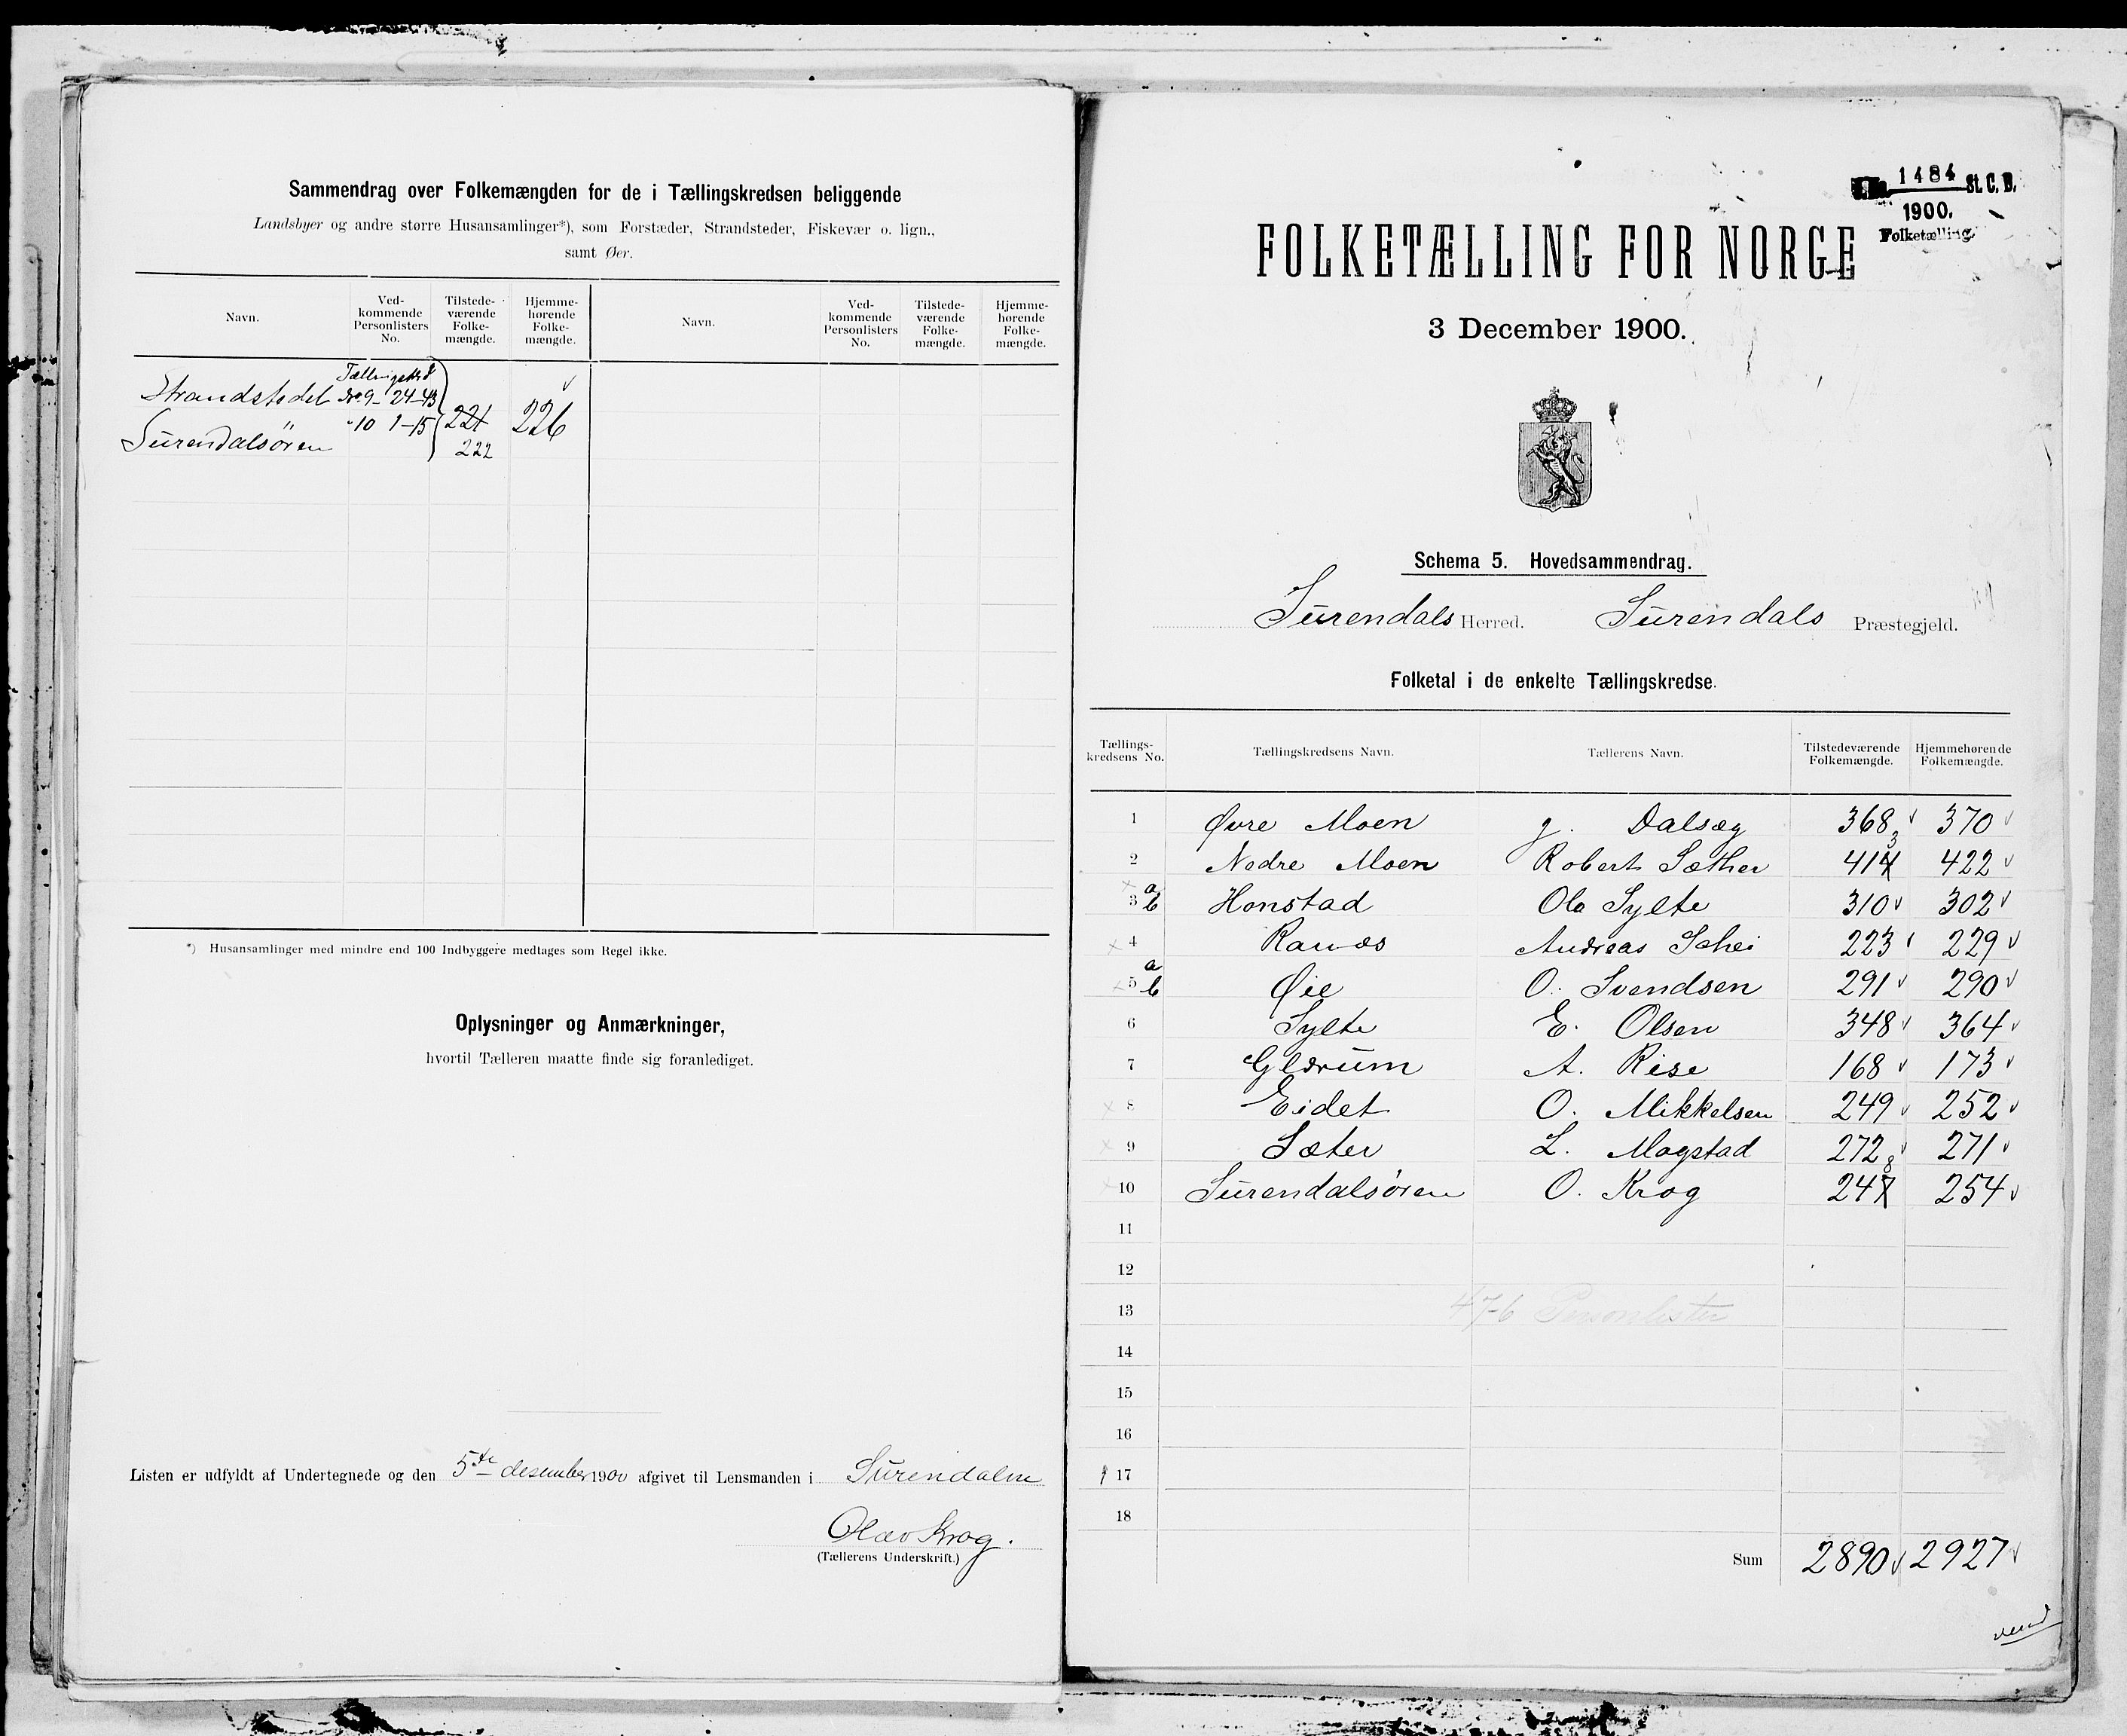 Sammendrag over Folkemængden for de i Tællingskredsen beliggende
Landsbyer og andre større Husansamlinger*), som Forstæder, Strandsteder, Fiskevær o. lign.,
samt Øer.
Navn. Ved-kommende Personlisters No. Tilstede-værende Folke-mængde. Hjemme-hørende Folke-mængde. Navn. Ved-kommende Personlisters No. Tilstede-værende Folke-mængde. Hjemme-hørende Folke-mængde.
Strandstedet No. 9 - 24-43
Surendalsören " 10 1-15 221 226
222
*) Husansamlinger med mindre end 100 Indbyggere medtages som Regel ikke.
Oplysninger og Anmærkninger,
hvortil Tælleren maatte finde sig foranlediget.
Listen er udfyldt af Undertegnede og den 5te desember 1900 afgivet til Lensmanden i Surendalen
Olav Krog.
(Tællerens Underskrift.)
1484 St. C. B.
1900.
Folketælling.
FOLKETÆLLING FOR NORGE
3 December 1900.
Schema 5. Hovedsammendrag.
Surendals Herred. Surendals Præstegjeld.
Folketal i de enkelte Tællingskredse.
Tællings-kredsens No. Tællingskredsens Navn. Tællerens Navn. Tilstedeværende Folkemængde. Hjemmehørende Folkemængde.
1 Øvre Moen J. Dalsæg 368 370
2 Nedre Moen Robert Sæther 413 422
3 a b Honstad Ola Sylte 310 302
4 Ranæs Andreas 223 229
5 a b Øie O. Svendsen 291 290
6 Sylte E. Olsen 348 364
7 Glærum A. Rise 168 173
8 Eidet O. Mikkelsen 249 252
9 Sæter L. Mogstad 272 271
10 Surendalsören O. Krog 248 254
11
12
13 476 Personlister
14
15
16
17
18
Sum 2890 2927